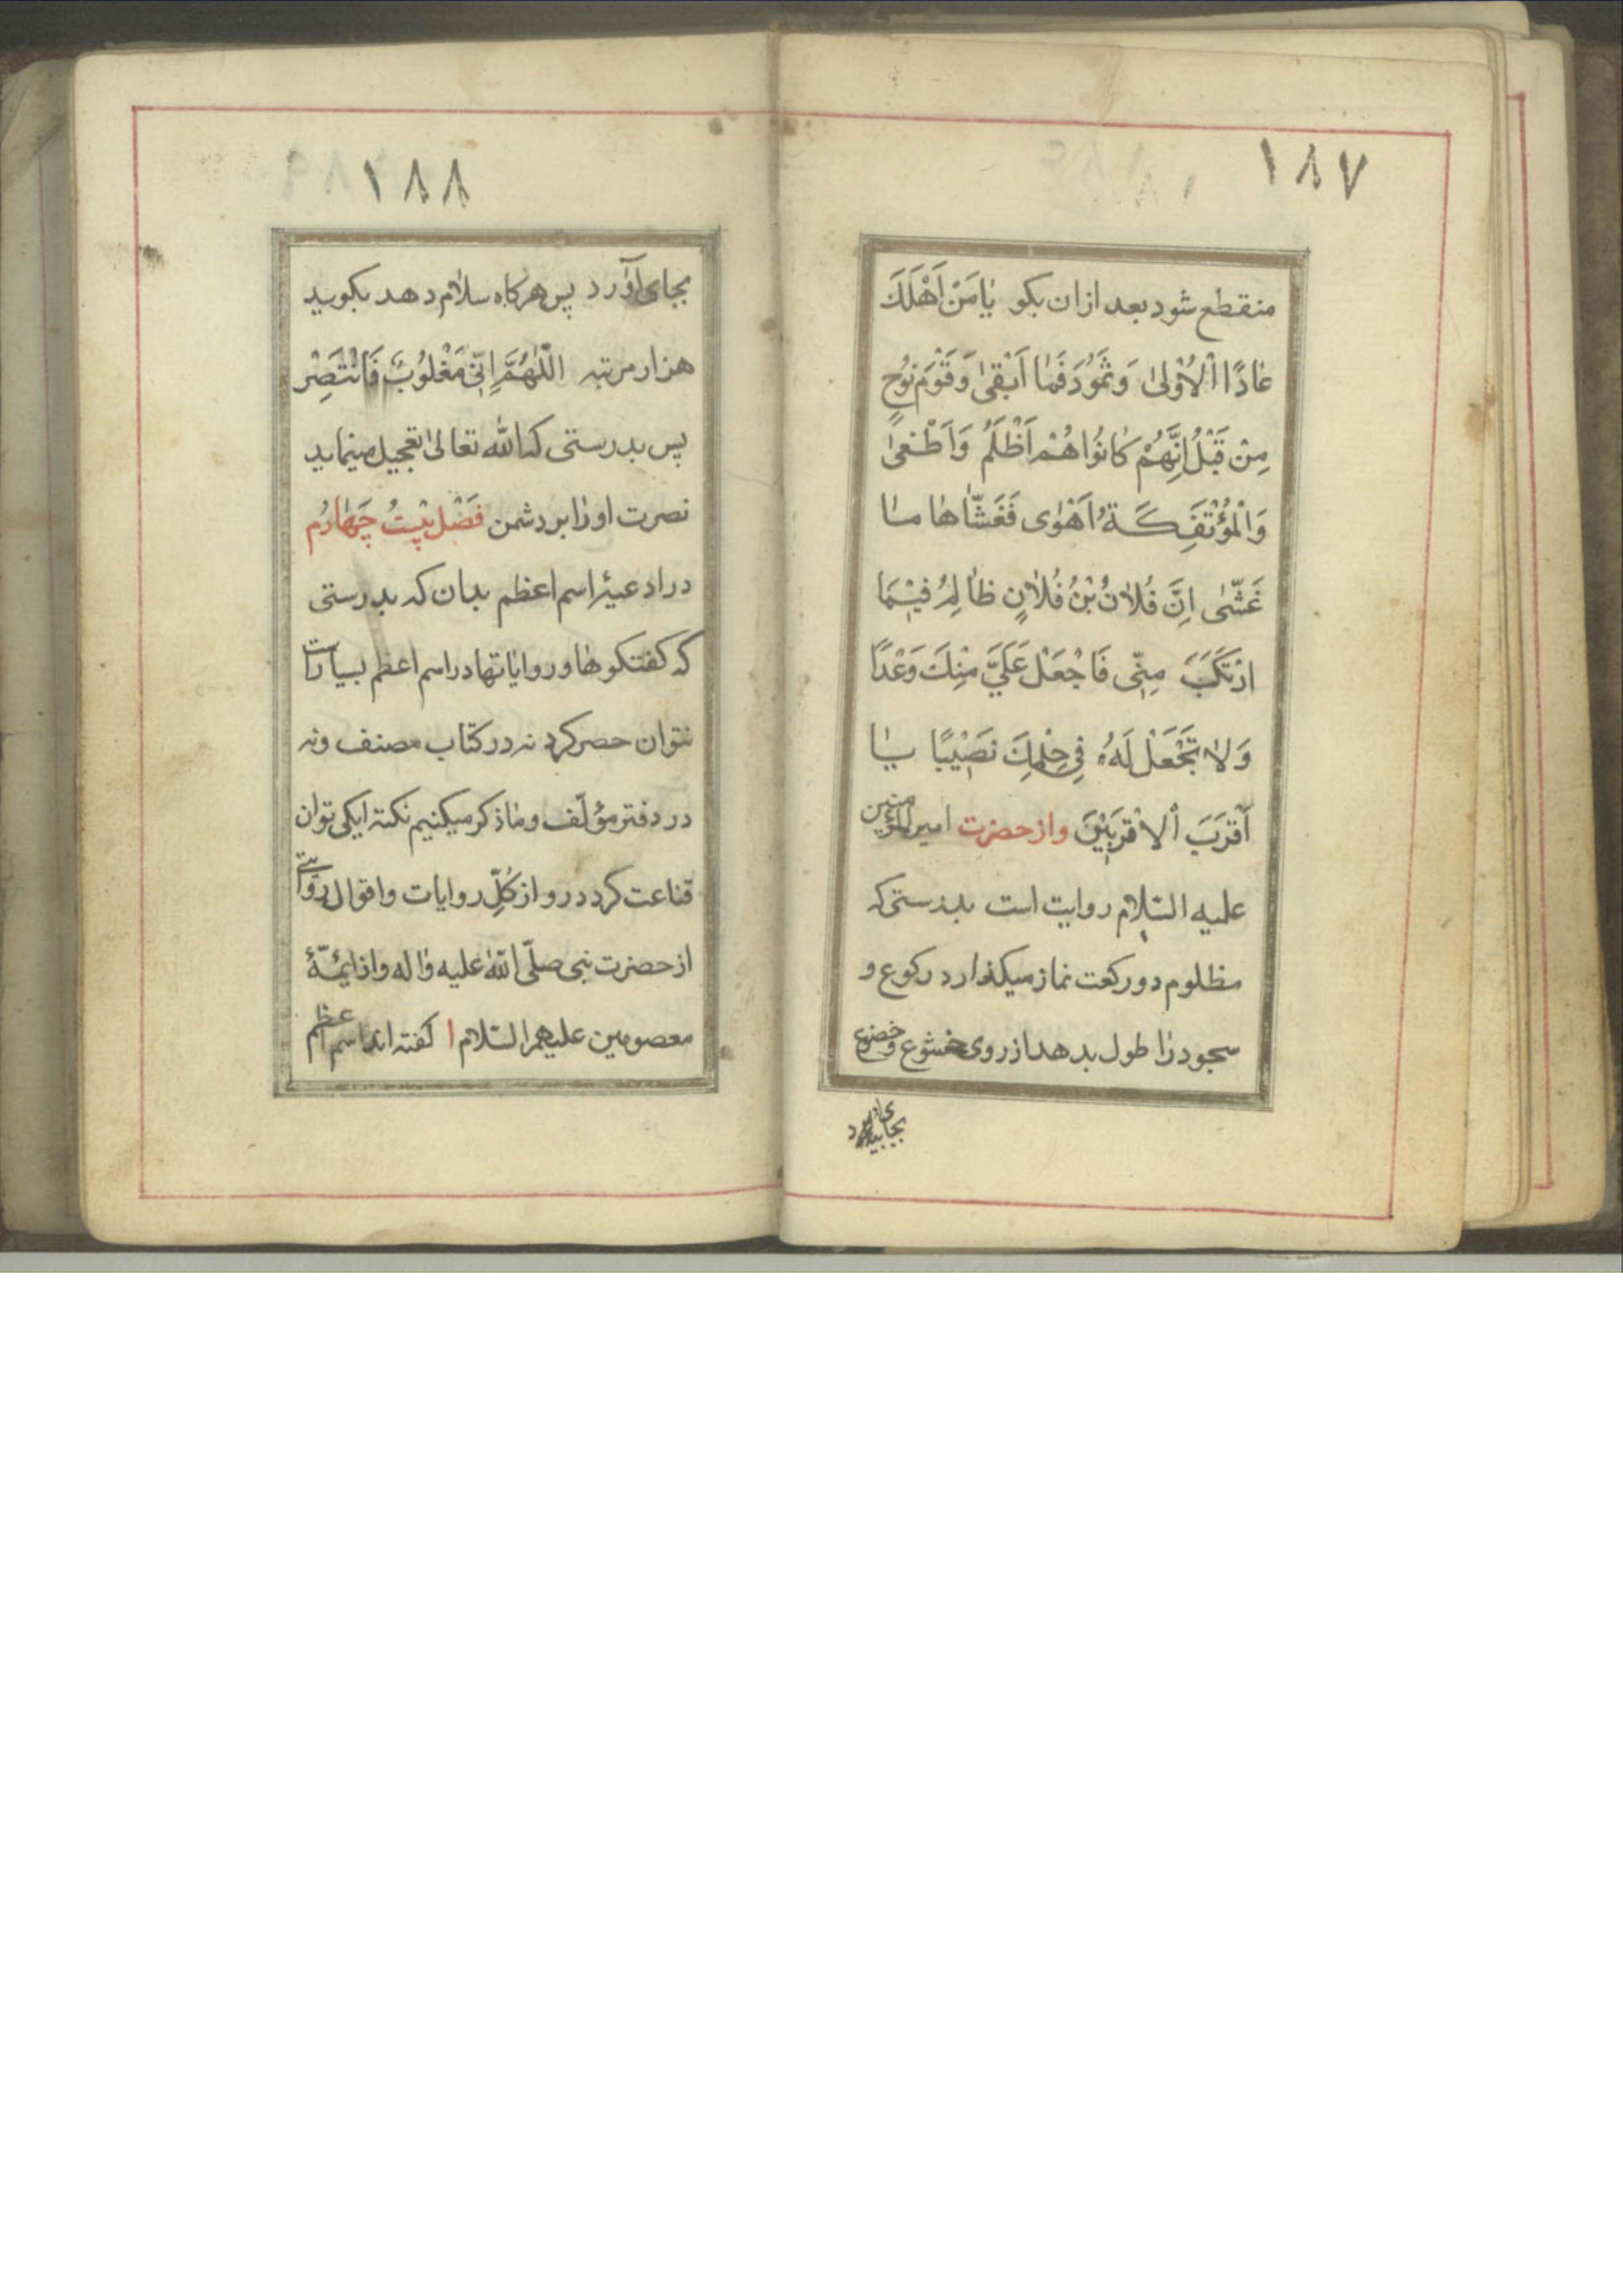 ١٨٧
منقطع شود بعد ازان بکو یٰا مَنْ اَهْلَكَ
عٰادًا اْلاُوْلیٰ وَ ثَمُوُدَ فَمٰا اَبْقیٰ وَ قَوْمَ نوُحٍ
مِنْ قَبْلُ اِنَّهُمْ کٰانُوُا هُمْ اَظْلَمُ وَ اَطْغیٰ
وَ الْمُؤْتَفِکَةُ اَهْوٰی فَغَشّٰاهٰا مٰا
غَشّٰی اِنَّ فُلاٰنُ بْنُ فُلاٰنٍ ظٰالِمُ فیٖمٰا
ارْتَکَبَ مِنّٖی فَاجْعَلْ عَلَیَّ مِنْكَ وَعْدًا
وَ لاٰ تَجْعَلْ لَهُ فِی حِلْمِكَ نَصٖیْبًا یٰا
اَقْرَبَ اْلاَقْرَبیٖنَ و از حضرت امیر المؤمنین
علیه السّلام روایت است بدرستی که
مظلوم دو رکعت نماز میکذارد رکوع و
سجود رٰا طول بدهد از روی خشوع و خضوع
١٨٨
بجای آوَرد پس هرکاه سلاٰم دهد بکوید
هزار مرتبه اللّٰهُمَّ اِنّٖی مَغْلوُبٌ فَانْتَصِرْ
پس بدرستی که الله تعالیٰ تعجیل مینماید
نصرت او رٰا بر دشمن فَصْل بیٖسْتُ چَهٰارُم
در ادعیۀ اسم اعظم بدان که بدرستی
که کفتکوهٰا و روایاتها در اسم اعظم بسیار است
نتوان حصر کرد نه در کتاب مصنف و نه
در دفتر مؤلّف و مٰا ذکر میکنیم نکته ایکی توان
قناعت کرد درو از کُلِّ روایات و اقوال روایتی
از حضرت نبی صلّی اللّٰه علیه وٰاله و از ایمّۀ
معصومین علیهم السّلام ا کفته اند اسم اعظم